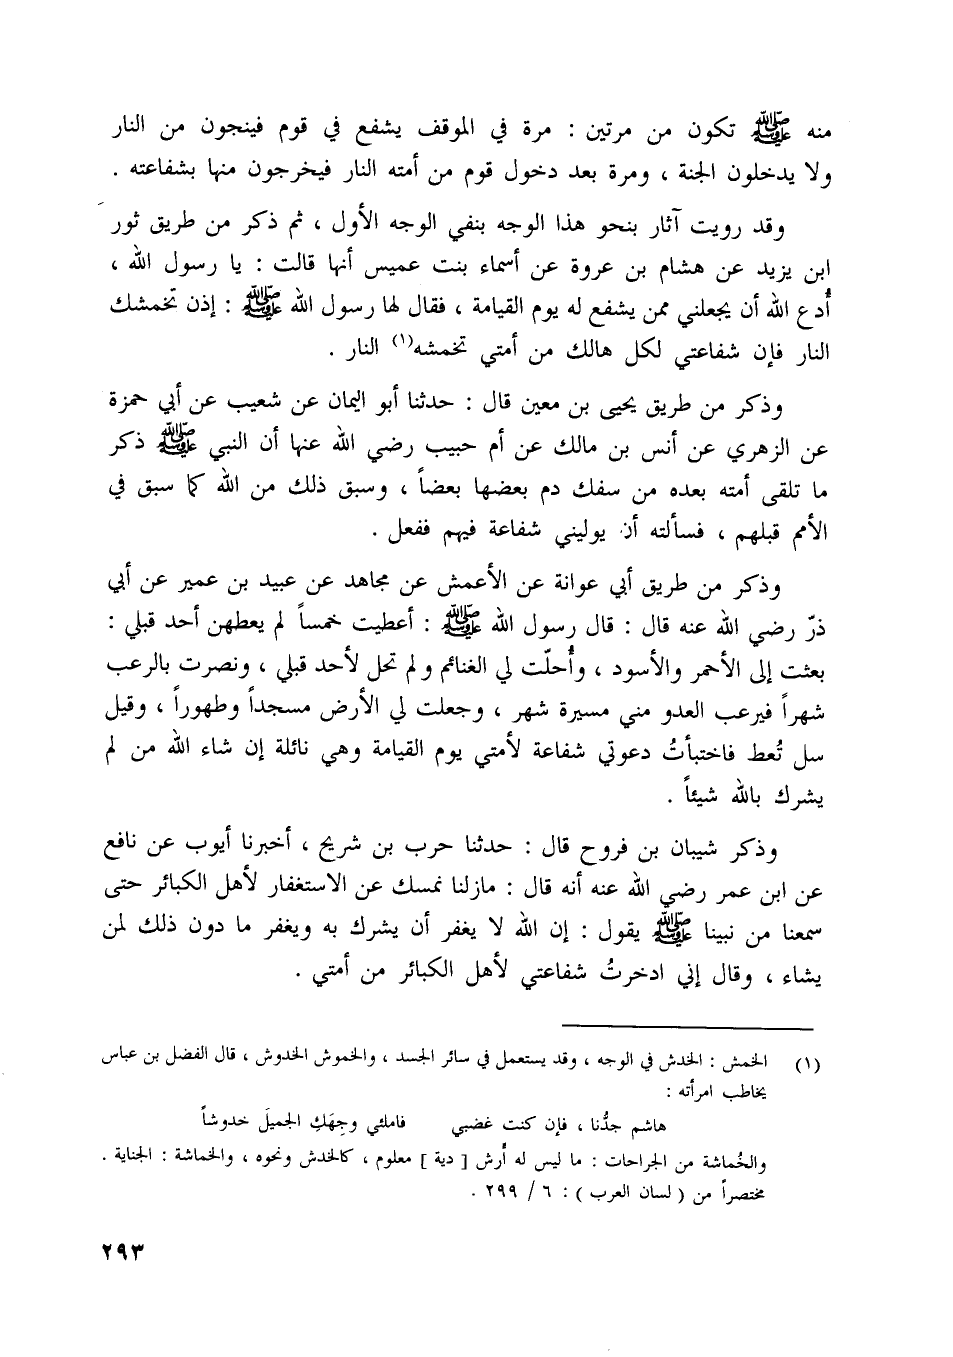 منه ﷺ تكون من مرتين : مرة في الموقف يشفع في قوم فينجون من النار
ولا يدخلون الجنة ، ومرة بعد دخول قوم من أمته النار فيخرجون منها بشفاعته .
وقد رويت آثار بنحو هذا الوجه بنفي الوجه الأول ، ثم ذكر من طريق ثور
ابن يزيد عن هشام بن عروة عن أسماء بنت عميس أنها قالت : يا رسول الله ،
أُدع الله أن يجعلني ممن يشفع له يوم القيامة ، فقال لها رسول الله ﷺ : إذن تخمشك
النار فإن شفاعتي لكل هالك من أمتي تخمشه(١) النار .
وذكر من طريق يحيى بن معين قال : حدثنا أبو اليمان عن شعيب عن أبي حمزة
عن الزهري عن أنس بن مالك عن أم حبيب رضي الله عنها أن النبي ﷺ ذكر
ما تلقى أمته بعده من سفك دم بعضها بعضاً ، وسبق ذلك من الله كما سبق في
الأمم قبلهم ، فسألته أن يوليني شفاعة فيهم ففعل .
وذكر من طريق أبي عوانة عن الأعمش عن مجاهد عن عبيد بن عمير عن أبي
ذرّ رضي الله عنه قال : قال رسول الله ﷺ : أعطيت خمساً لم يعطهن أحد قبلي :
بعثت إلى الأحمر والأسود ، وأُحلّت لي الغنائم ولم تحل لأحد قبلي ، ونصرت بالرعب
شهراً فيرعب العدو مني مسيرة شهر ، وجعلت لي الأرض مسجداً وطهوراً ، وقيل
سل تُعط فاختبأتُ دعوتي شفاعة لأمتي يوم القيامة وهي نائلة إن شاء الله من لم
يشرك بالله شيئاً .
وذكر شيبان بن فروح قال : حدثنا حرب بن شريح ، أخبرنا أيوب عن نافع
عن ابن عمر رضي الله عنه أنه قال : مازلنا نمسك عن الاستغفار لأهل الكبائر حتى
سمعنا من نبينا ﷺ يقول : إن الله لا يغفر أن يشرك به ويغفر ما دون ذلك لمن
يشاء ، وقال إني ادخرتُ شفاعتي لأهل الكبائر من أمتي .
(١) الخمش : الخدش في الوجه ، وقد يستعمل في سائر الجسد ، والخموش الخدوش ، قال الفضل بن عباس
يخاطب امرأته :
هاشم جدُّنا ، فإن كنت غضبي فاملئي وجِهَكِ الجميلَ خدوشاً
والخُماشة من الجراحات : ما ليس له أرش [ دية ] معلوم ، كالخدش ونحوه ، والخماشة : الجناية .
مختصراً من ( لسان العرب ) : ٦ / ٢٩٩ .
٢٩٣